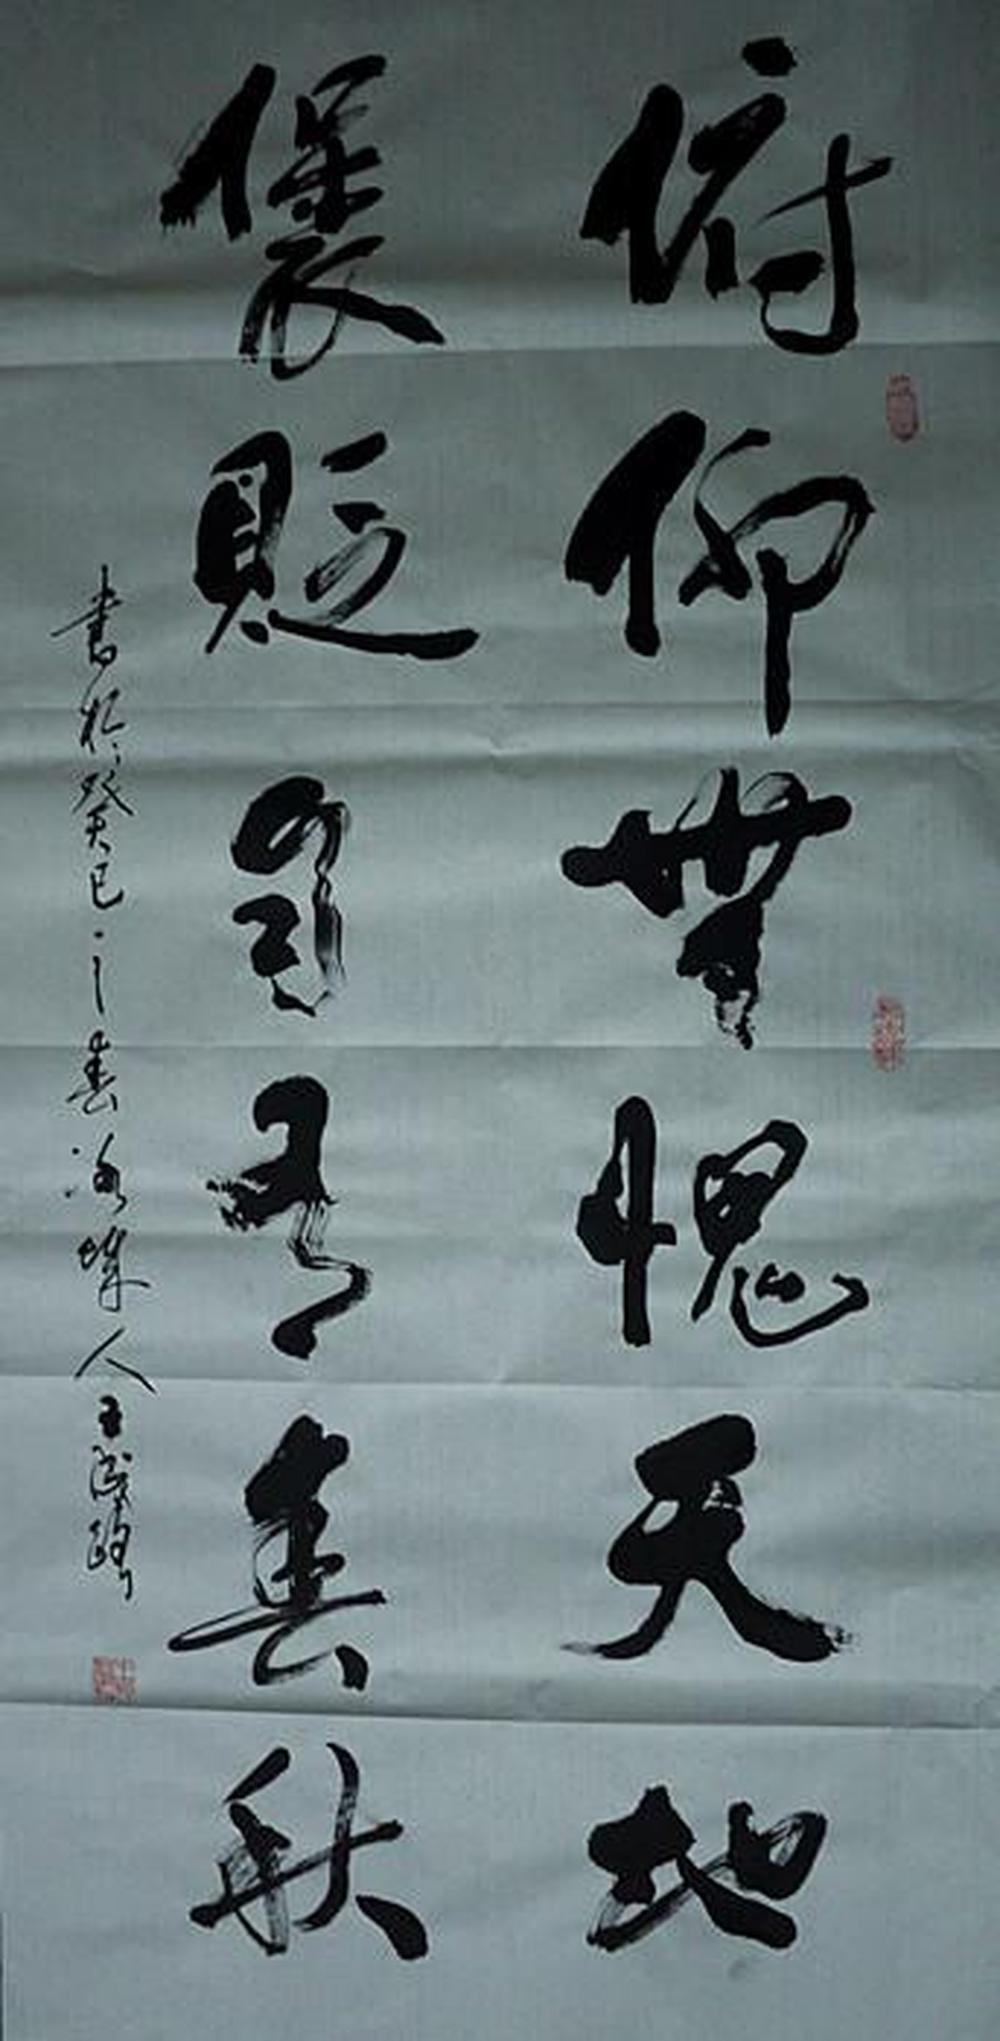 俯仰無愧天地
褒貶自有春秋
書於癸巳之春 人王